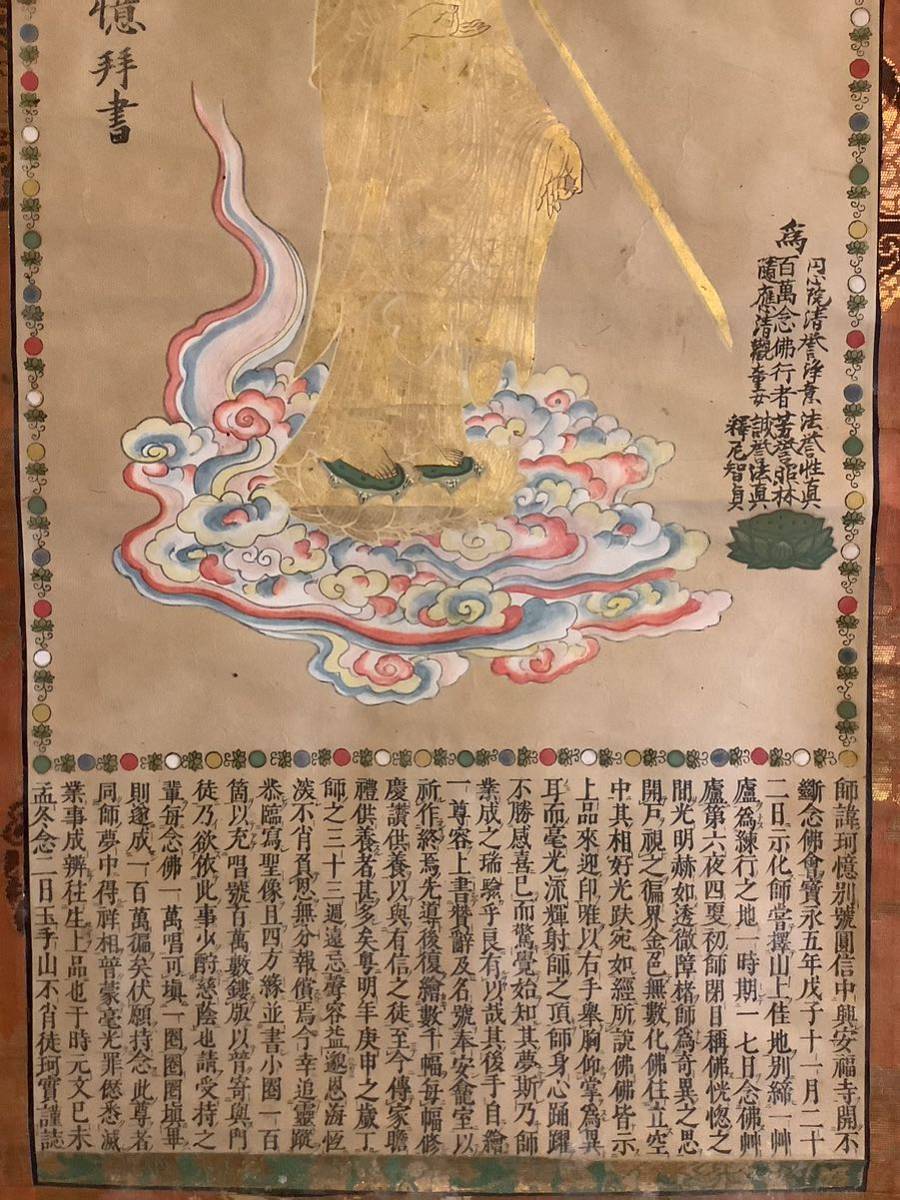 為
円心院清誉浄業 法誉性真
百萬念佛行者 芳誉昭林
隨應清觀童女 誠誉法真
釋尼智貞
憶拜書
師諱珂憶別號圓信中興安福寺開不
斷念佛會寶永五年戊子十一月二十
二日示化師嘗擇山上佳地別締一艸
廬為練行之地一時期一七日念佛艸
廬第六夜四更初師閉目稱佛恍惚之
間光明赫如透徹障楮師為奇異之思
開戸視之徧界金色無數化佛住立空
中其相好光趺宛如經所說佛佛皆示
上品來迎印唯以右手舉胸仰掌為異
耳而毫光流輝射師之頂師身心踊躍
不勝感喜已而驚覺始知其夢斯乃師
業成之瑞驗乎良有以哉其後手自繪
一尊容上書贊辭及名號奉安龕室以
祈作終焉先導後復繪數千幅每幅修
慶讃供養以與有信之徒至今傳家瞻
禮供養者甚多矣粤明年庚申之歳丁
師之三十三週遠忌聲容益邈恩海恆
淡不肖負恩無分報償焉今幸追靈蹤
恭臨寫聖像且四方緣並書小圈一百
箇以充唱號百萬數鏤版以普寄與門
徒乃欲依此事少酹慈蔭也請受持之
輩每念佛一萬唱可塡一圈圈圈塡畢
則遂成一百萬徧矣伏願持念此尊者
同師夢中得祥相普蒙毫光罪愆悉滅
業事成辨往生上品也于時元文己未
孟冬念二日玉手山不肖徒珂實謹誌